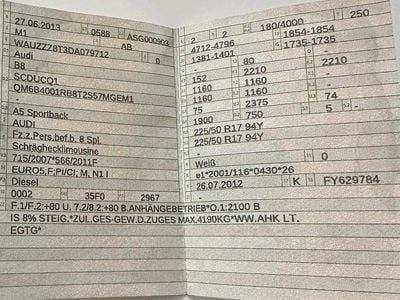 27.06.2013 0588 ASG000903
M1 AB
WAUZZZ8T3DA079712 0
Audi
B8
SCDUCQ1
QM6B4001RB8T2S57MGEM1
-
A5 Sportback
AUDI
Fz.z.Pers.bef.b. 8 Spl.
Schräghecklimousine
715/2007*566/2011F
EURO5;F;PI/CI; M, N1 I
Diesel
0002 35F0 2967
2 2 180/4000 250
4712-4796 1854-1854
1381-1401 1735-1735
- 80 -
152 2210 2210
1160 1160 -
1160 1160 -
75 2375 74
1900 750 5 -
225/50 R17 94Y
225/50 R17 94Y
-
Weiß 0
e1*2001/116*0430*26
26.07.2012 K FY629784
F.1/F.2:+80 U. 7.2/8.2:+80 B.ANHÄNGEBETRIEB*O.1:2100 B
IS 8% STEIG.*ZUL.GES-GEW.D.ZUGES MAX.4190KG*WW.AHK LT.
EGTG*